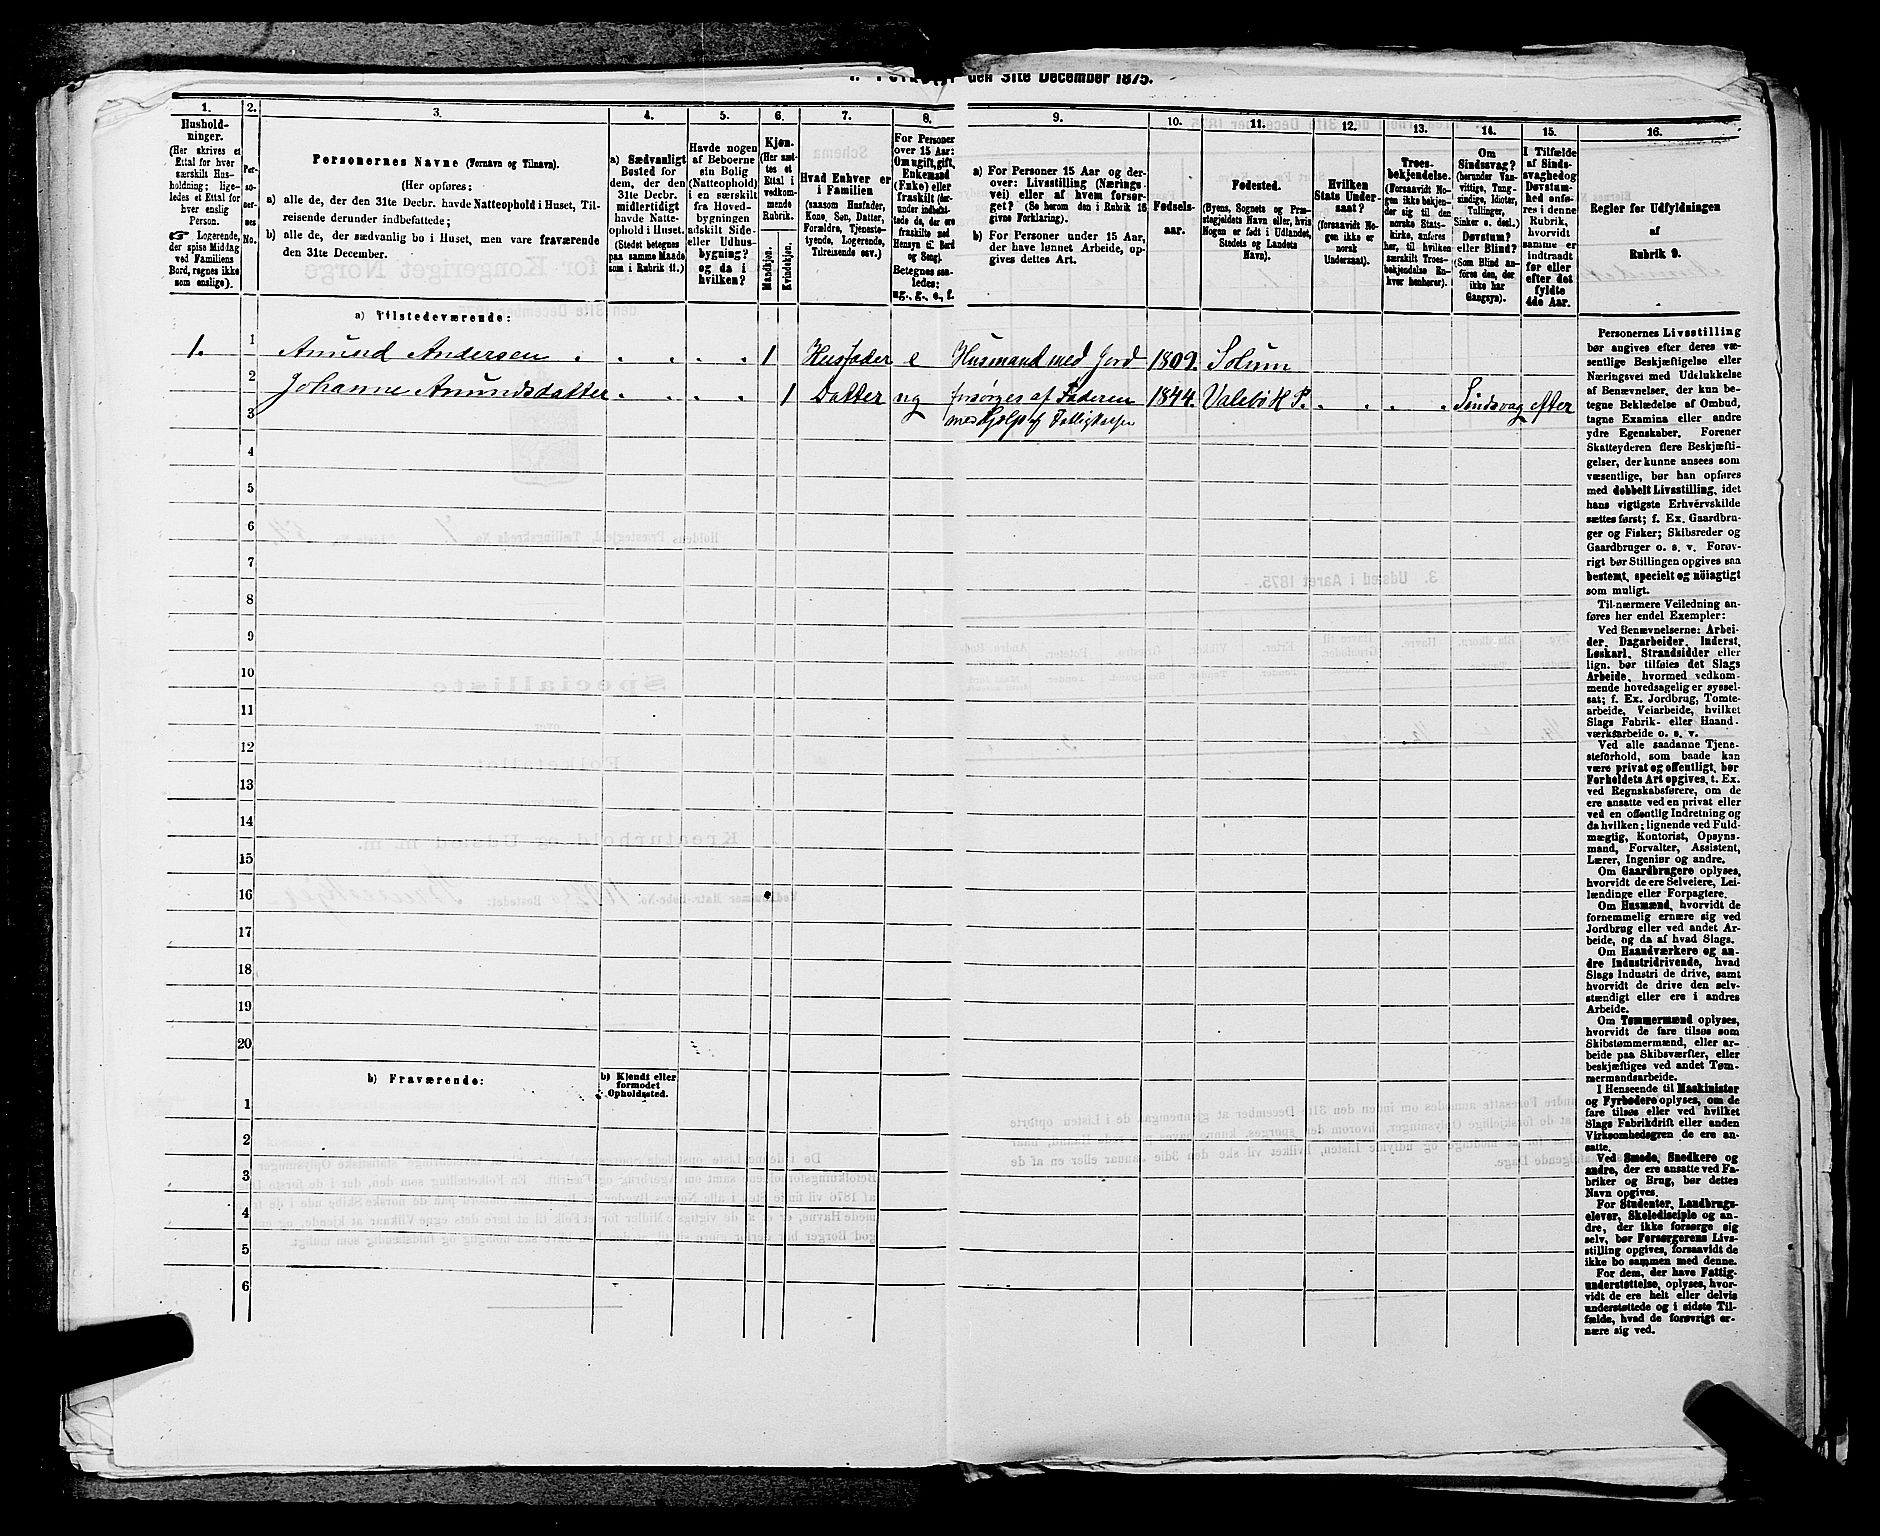 den 31te December 1875.
1. 2. 3. 4. 5. 6. 7. 8. 9. 10. 11. 12. 13. 14. 15. 16.
Hushold-
ninger.
(Her skrives et
Ettal for hver
særskilt Hus-
holdning; lige-
ledes et Ettal for
hver enslig
Person.
☞ Logerende,
der spise Middag
ved Familiens
Bord, regnes ikke
som enslige).
Per-
so-
ner-
nes
No.
Personernes Navne (Fornavn og Tilnavn).
(Her opføres:
a) alle de, der den 31te Decbr. havde Natteophold i Huset, Til-
reisende derunder indbefattede;
b) alle de, der sædvanlig bo i Huset, men vare fraværende
den 31te December.
a) Sædvanligt
Bosted for
dem, der den
31te Decbr.
midlertidigt
havde Natte-
ophold i Huset.
(Stedet betegnes
paa samme Maade
som i Rubrik 11.)
Havde nogen
af Beboerne
sin Bolig
(Natteophold)
i en særskilt
fra Hoved-
bygningen
adskilt Side-
eller Udhus-
bygning?
og da i
hvilken?
Kjøn.
(Her sæt-
tes et
Ettal i
vedkom-
mende
Rubrik.
Mandkjøn.
Kvindekjøn.
Hvad Enhver er
i Familien
(saasom Husfader,
Kone, Søn, Datter,
Forældre, Tjeneste-
tyende, Logerende,
Tilreisende osv.)
For Personer
over 15 Aar:
Om ugift, gift,
Enkemand
(Enke) eller
fraskilt (der-
under indbefat-
tede de, der ere
fraskilte med
Hensyn til Bord
og Seng).
Betegnes saa-
ledes:
ug., g., e., f.
a) For Personer 15 Aar og der-
over: Livsstilling (Nærings-
vei) eller af hvem forsør-
get? (Se herom den i Rubrik 16
givne Forklaring).
b) For Personer under 15 Aar,
der have lønnet Arbeide, op-
gives dettes Art.
Fødsels-
aar.
Fødested.
(Byens, Sognets og Præ-
stegjeldets Navn eller, hvis
Nogen er født i Udlandet,
Stedets og Landets
Navn).
Hvilken
Stats Under-
saat?
(forsaavidt No-
gen ikke er
norsk
Undersaat).
Troes-
bekjendelse.
(Forsaavidt No-
gen ikke bekjen-
der sig til den
norske Stats-
kirke, anføres
her, til hvilken
særskilt Troes-
bekjendelse En-
hver henhører).
Om
Sindssvag?
(herunder Van-
vittige, Tung-
sindige, Idioter,
Tullinger,
Sinker o. desl.)
Døvstum?
eller Blind?
(Som Blind an-
føres den, der
ikke har
Gangsyn).
I Tilfælde
af Sinds-
svaghed og
Døvstum-
hed anfø-
res i denne
Rubrik,
hvorvidt
samme er
indtraadt
før eller
efter det
fyldte
4de Aar.
Regler for Udfyldningen
af
Rubrik 9.
a) Tilstedeværende:
1. 1 Amund Andersen . . . . . 1 Husfader e Husmand med Jord 1809. Solum
2 Johanne Amundsdatter . . . . 1 Datter ug forsørges af Faderen 1844. Valebø K P. . . . . Sindsvag efter
3 med Hjælp af Fattigkassen
4
5
6
7
8
9
10
11
12
13
14
15
16
17
18
19
20
b) Fraværende:
b) Kjendt eller
formodet
Opholdssted.
1
2
3
4
5
6
Personernes Livsstilling
bør angives efter deres væ-
sentlige Beskjæftigelse eller
Næringsvei med Udelukkelse
af Benævnelser, der kun be-
tegne Beklædelse af Ombud,
tagne Examina eller andre
ydre Egenskaber. Forener
Skatteyderen flere Beskjæfti-
gelser, der kunne ansees som
væsentlige, bør han opføres
med dobbelt Livsstilling, idet
hans vigtigste Erhvervskilde
sættes først; f. Ex. Gaardbru-
ger og Fisker; Skibsreder og
Gaardbruger o. s. v. Forøv-
rigt bør Stillingen opgives saa
bestemt, specielt og nöiagtigt
som muligt.
Til nærmere Veiledning an-
føres her endel Exempler:
Ved Benævnelserne: Arbei-
der, Dagarbeider, Inderst,
Løskarl, Strandsidder eller
lign. bør tilføies det Slags
Arbeide, hvormed vedkom-
mende hovedsagelig er syssel-
sat; f. Ex. Jordbrug, Tomte-
arbeide, Veiarbeide, hvilket
Slags Fabrik- eller Haand-
værksarbeide o. s. v.
Ved alle saadanne Tjene-
steforhold, som baade kan
være privat og offentligt, bør
Forholdets Art opgives, t. Ex.
ved Regnskabsførere, om de
ere ansatte ved en privat eller
ved en offentlig Indretning og
da hvilken; lignende ved Fuld-
mægtig, Kontorist, Opsyns-
mand, Forvalter, Assistent,
Lærer, Ingeniør og andre.
Om Gaardbrugere oplyses,
hvorvidt de ere Selveiere, Lei-
lændinge eller Forpagtere.
Om Husmænd, hvorvidt de
fornemmelig ernære sig ved
Jordbrug eller ved andet Ar-
beide, og da af hvad Slags.
Om Haandværkere og an-
dre Industridrivende, hvad
Slags Industri de drive, samt
hvorvidt de drive den selv-
stændigt eller ere i andres
Arbeide.
Om Tømmermænd oplyses,
hvorvidt de fare tilsøs som
Skibstømmermænd, eller ar-
beide paa Skibsværfter, eller
beskjæftiges ved andet Tøm-
mermandsarbeide.
I Henseende til Maskinister
og Fyrbødere oplyses, om de
fare tilsøs eller ved hvilket
Slags Fabrikdrift eller anden
Virksomhedsgren de ere an-
satte.
Ved Smede, Snedkere og
andre, der ere ansatte ved Fa-
briker og Brug, bør dettes
Navn opgives.
For Studenter, Landbrugs-
elever, Skoledisciple og an-
dre, der ikke forsørge sig
selv, bør Forsørgerens Livs-
stilling opgives, forsaavidt de
ikke bo sammen med denne.
For dem, der have Fattig-
understøttelse, oplyses, hvor-
vidt de ere helt eller delvis
understøttede og i sidste Til-
fælde, hvad de forøvrigt er-
nære sig ved.